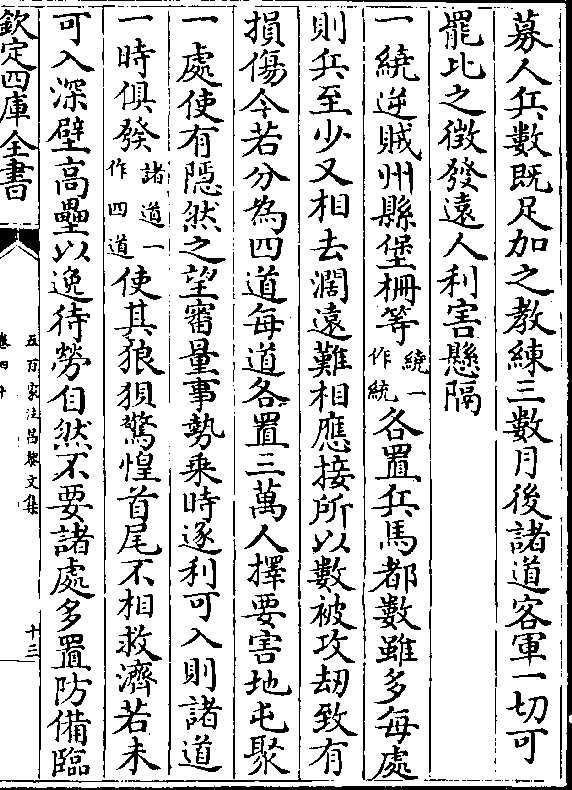 募人兵數既足加之教練三數月後諸道客軍一切可
罷比之徴發遠人利害懸隔
一繞逆賊州縣堡柵等繞一作統各置兵馬都數雖多每處
則兵至少又相去濶遠難相應接所以數被攻刼致有
損傷今若分為四道每道各置三萬人擇要害地屯聚
一處使有隠然之望審量事勢乘時逐利可入則諸道
一時俱發諸道一作四道使其狼狽驚惶首尾不相救濟若未
可入深壁高壘以逸待勞自然不要諸處多置防備臨
欽定四庫全書
五百家注昌黎文集
卷四十
十三